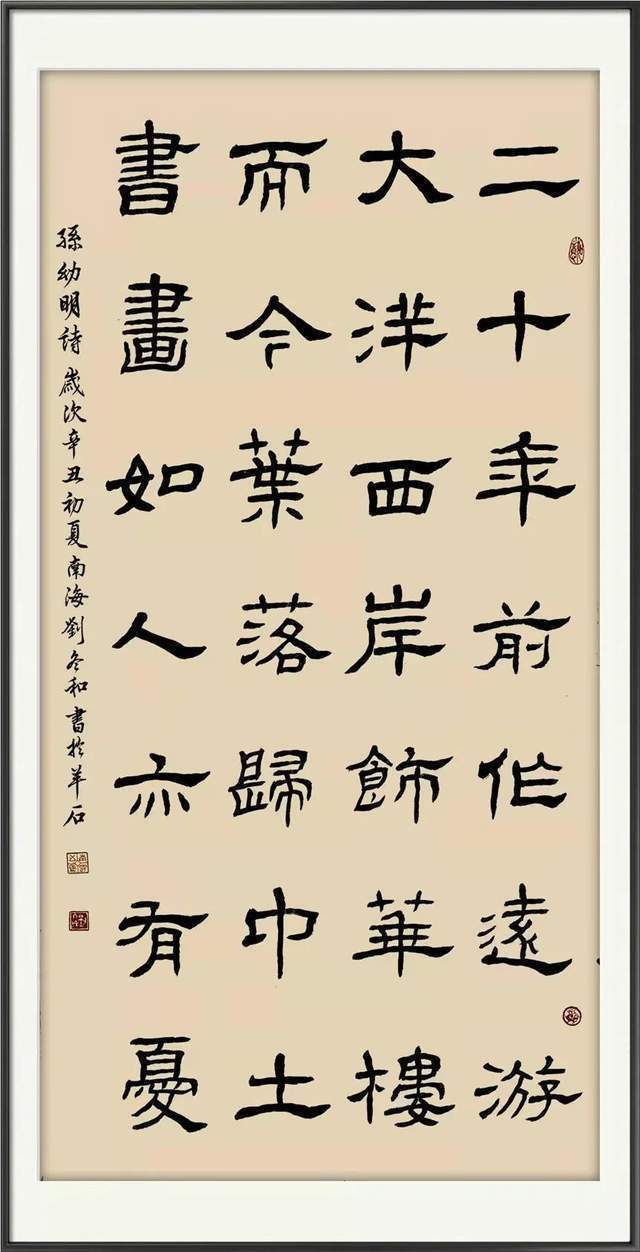 二十年前作遠游
大洋西岸飾華樓
而今葉落歸中土
書畫如人亦有憂
孫幼明詩歲次辛丑初夏南海劉冬和書於羊石